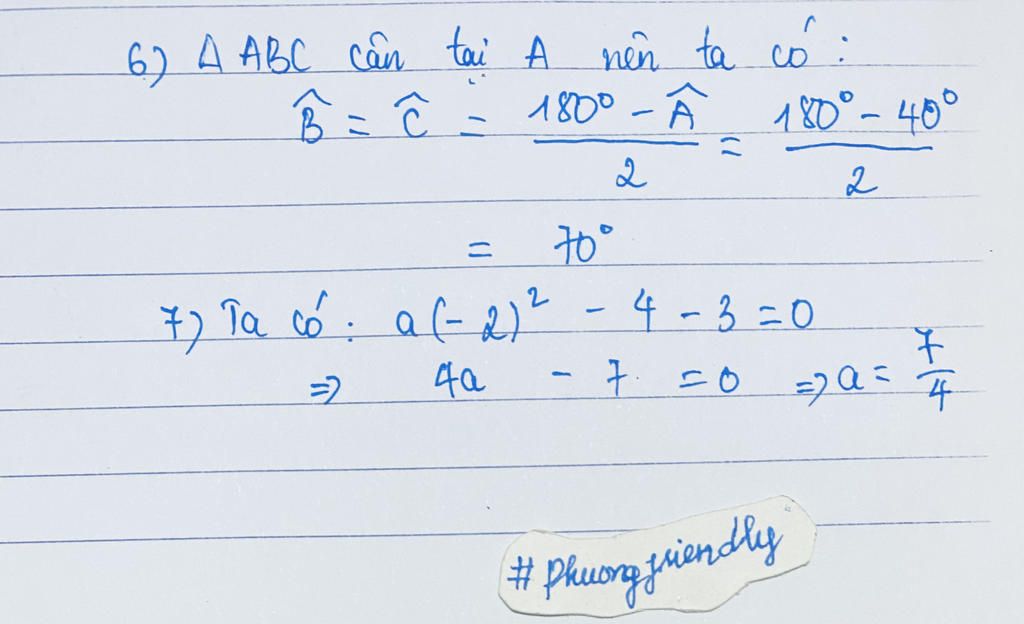 6) Δ ABC cân tại A nên ta có :
B̂ = Ĉ = (180° - Â)/2 = (180° - 40°)/2
= 70°
7) Ta có : a(-2)² - 4 - 3 = 0
⇒ 4a - 7 = 0 ⇒ a = 7/4
# Phuongfriendly